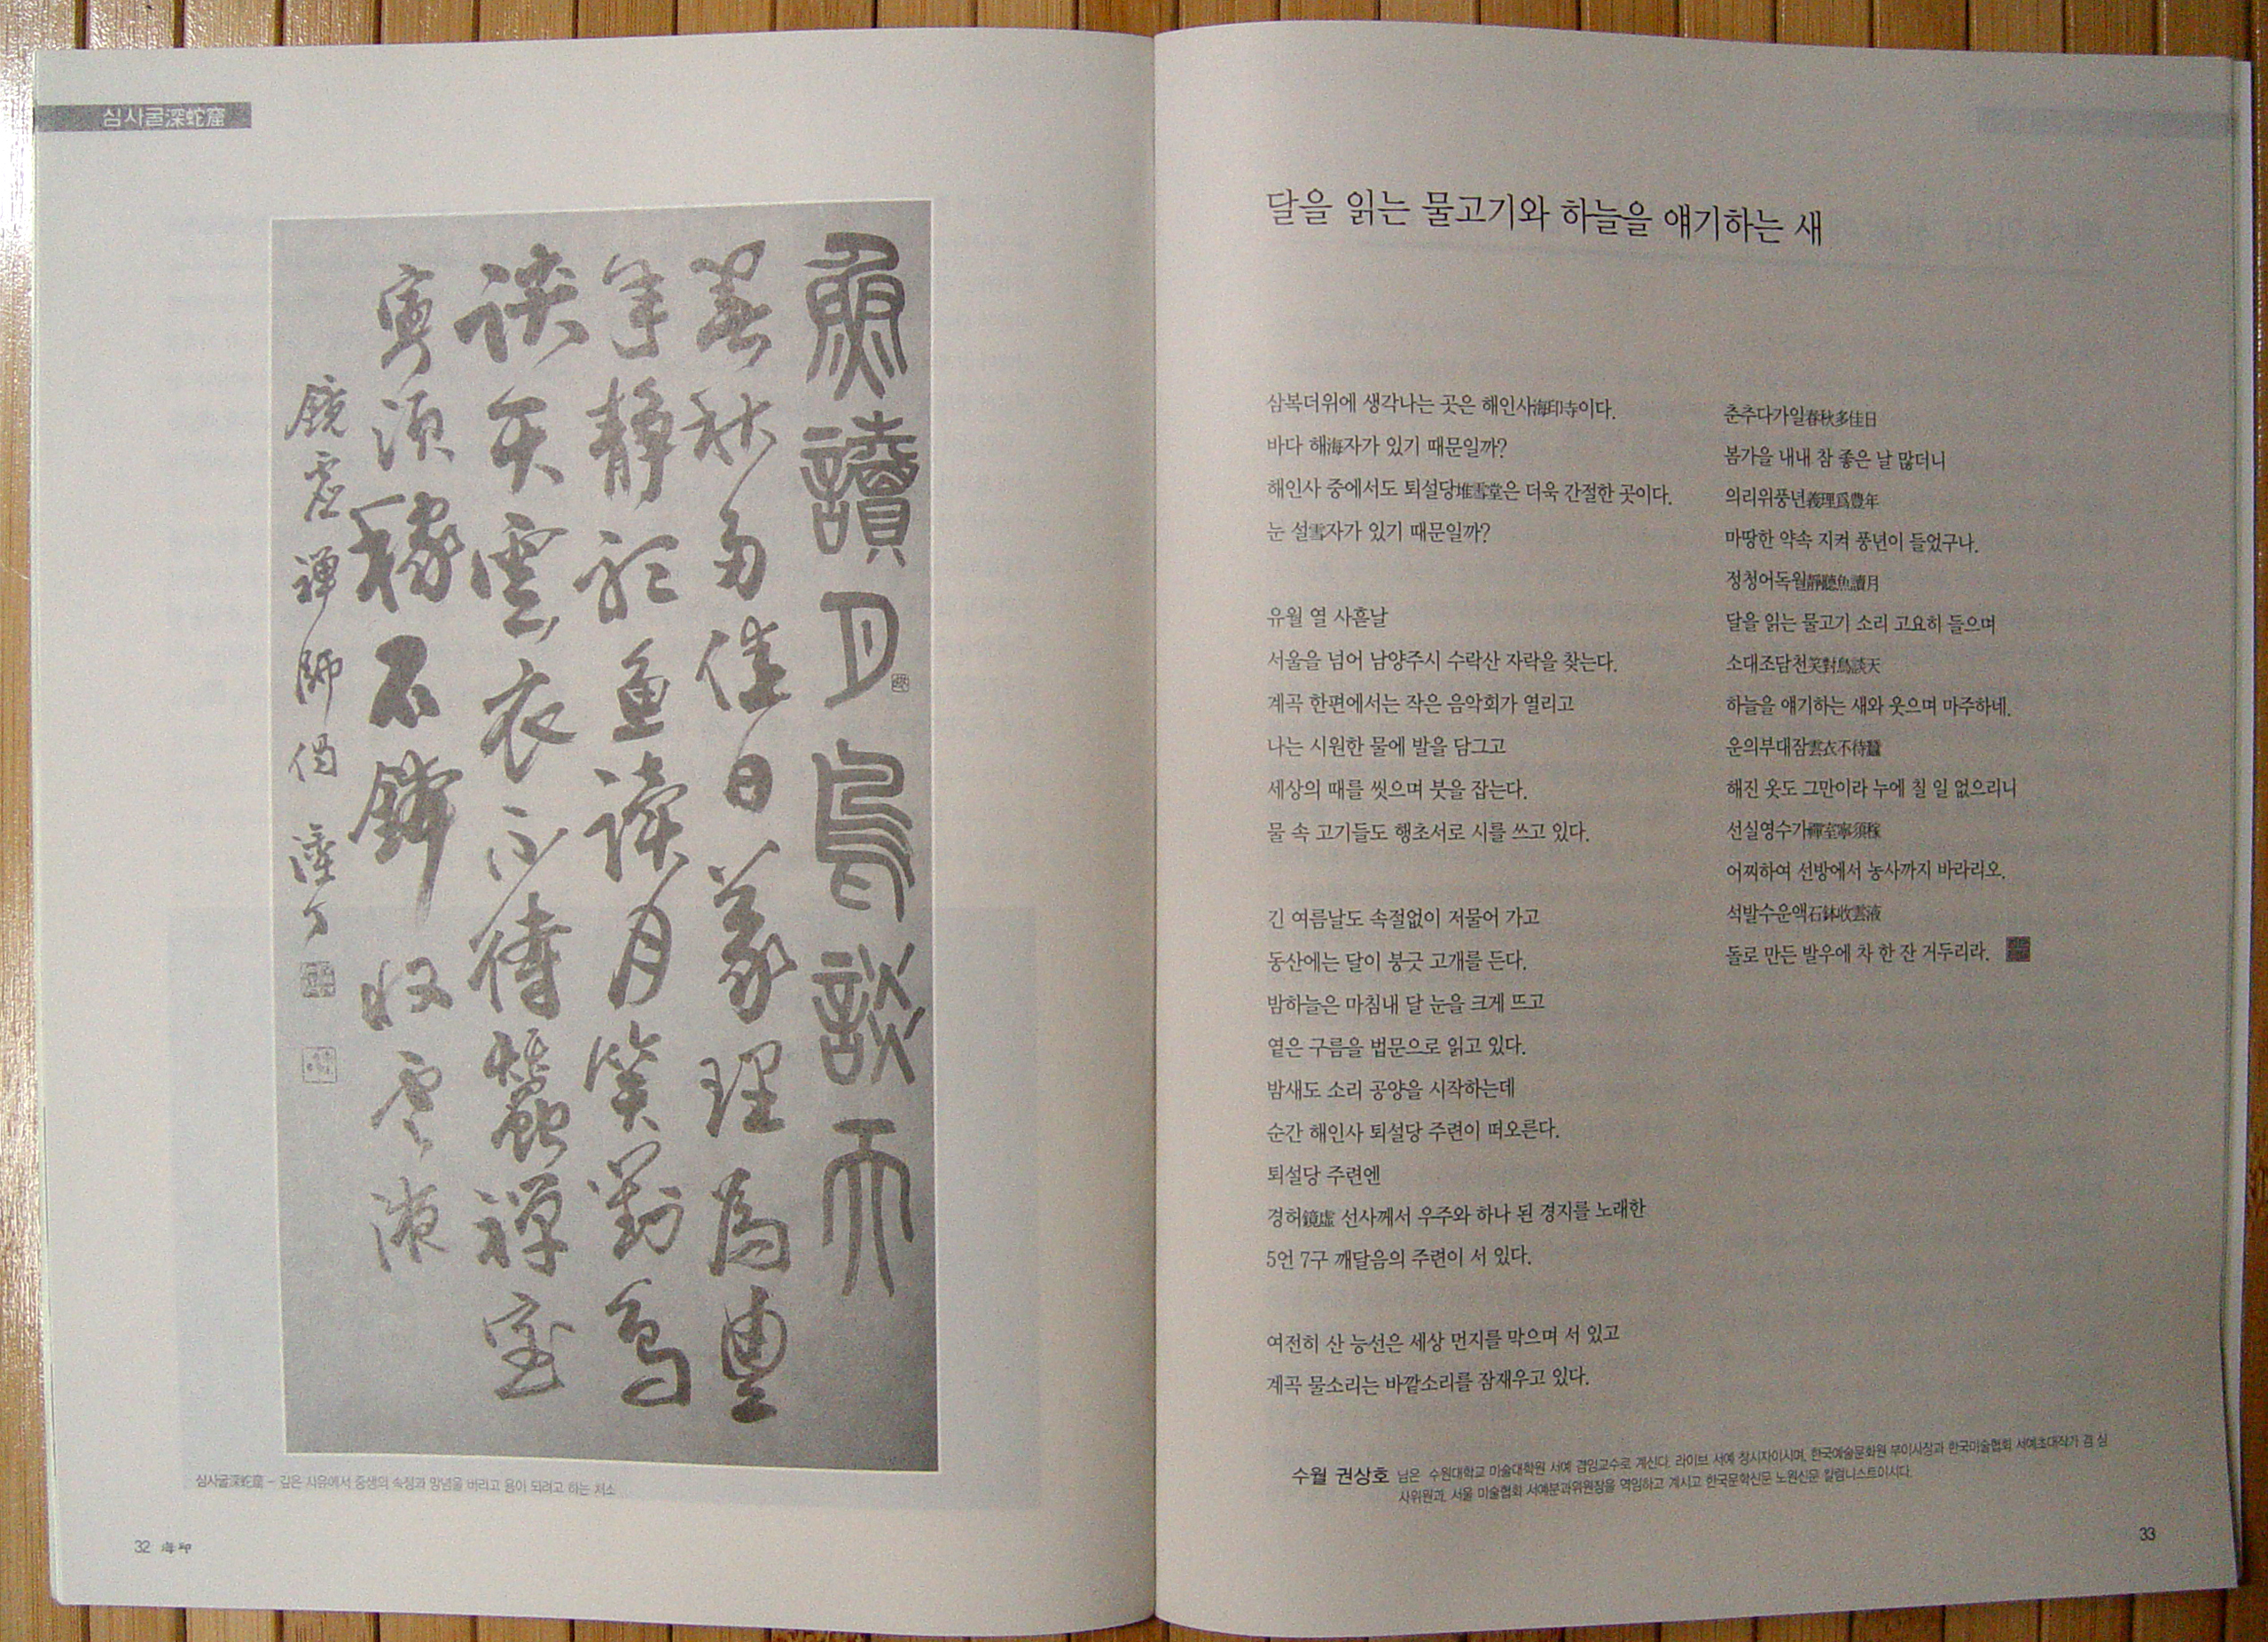 심사굴深蛇窟
魚讀月鳥談天
春秋多佳日義理為豊
年静聽魚讀月笑對鳥
談天雲衣不待蠶禪室
寧須稼石鉢收雲液
鏡虛禪師偈
심사굴深蛇窟 – 깊은 사유에서 중생의 속정과 망념을 버리고 용이 되려고 하는 처소
32 海印
달을 읽는 물고기와 하늘을 얘기하는 새
삼복더위에 생각나는 곳은 해인사海印寺이다.
바다 해海자가 있기 때문일까?
해인사 중에서도 퇴설당堆雪堂은 더욱 간절한 곳이다.
눈 설雪자가 있기 때문일까?
유월 열 사흗날
서울을 넘어 남양주시 수락산 자락을 찾는다.
계곡 한편에서는 작은 음악회가 열리고
나는 시원한 물에 발을 담그고
세상의 때를 씻으며 붓을 잡는다.
물 속 고기들도 행초서로 시를 쓰고 있다.
긴 여름날도 속절없이 저물어 가고
동산에는 달이 붕긋 고개를 든다.
밤하늘은 마침내 달 눈을 크게 뜨고
옅은 구름을 법문으로 읽고 있다.
밤새도 소리 공양을 시작하는데
순간 해인사 퇴설당 주련이 떠오른다.
퇴설당 주련엔
경허鏡虛 선사께서 우주와 하나 된 경지를 노래한
5언 7구 깨달음의 주련이 서 있다.
여전히 산 능선은 세상 먼지를 막으며 서 있고
계곡 물소리는 바깥소리를 잠재우고 있다.
춘추다가일春秋多佳日
봄가을 내내 참 좋은 날 많더니
의리위풍년義理爲豊年
마땅한 약속 지켜 풍년이 들었구나.
정청어독월靜聽魚讀月
달을 읽는 물고기 소리 고요히 들으며
소대조담천笑對鳥談天
하늘을 얘기하는 새와 웃으며 마주하네.
운의부대잠雲衣不待蠶
해진 옷도 그만이라 누에 칠 일 없으리니
선실영수가禪室寧須稼
어찌하여 선방에서 농사까지 바라리오.
석발수운액石鉢收雲液
돌로 만든 발우에 차 한 잔 거두리라.
수월 권상호 님은 수원대학교 미술대학원 서예 겸임교수로 계신다. 라이브 서예 창시자이시며, 한국예술문화원 부이사장과 한국미술협회 서예초대작가 겸 심
사위원과, 서울 미술협회 서예분과위원장을 역임하고 계시고 한국문학신문 노원신문 칼럼니스트이시다.
33